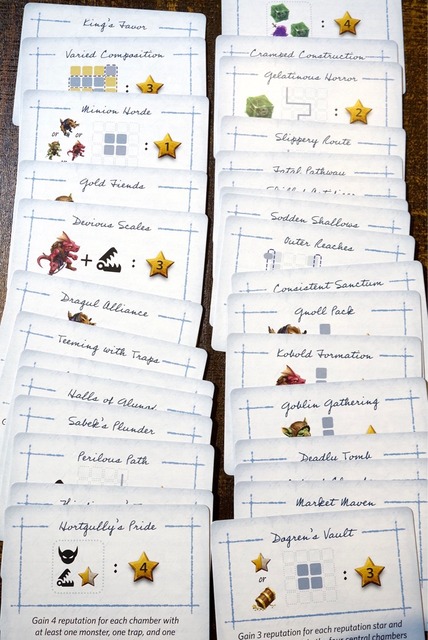 King's Favor
Varied Composition
: 3
Minion Horde
or or : 1
Gold Fiends
Devious Scales
+ : 3
Dragul Alliance
Teeming with Traps
Halls of
Sabek's Plunder
Perilous Path
Hortgully's Pride
: 4
Gain 4 reputation for each chamber with
at least one monster, one trap, and one
: 4
Cramped Construction
Gelatinous Horror
: 2
Slippery Route
Total Pathway
Sodden Shallows
Outer Reaches
Consistent Sanctum
Gnoll Pack
Kobold Formation
Goblin Gathering
Deadly Tomb
Market Maven
Dogren's Vault
or : 3
Gain 3 reputation for each reputation star and
four central chambers